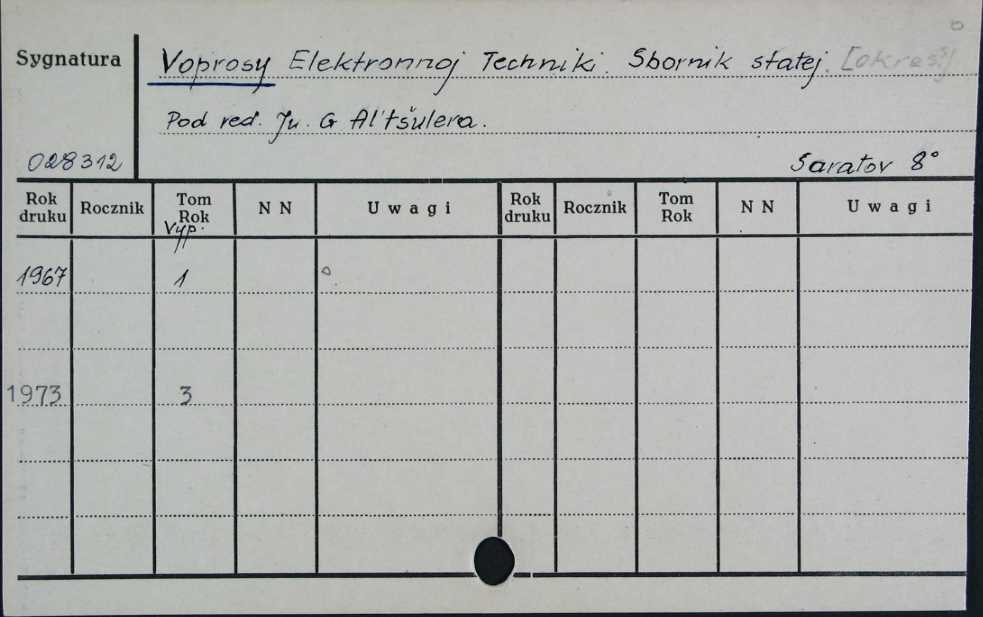 Sygnatura
Voprosy Elektronnoj Techniki. Sbornik statej. [okres]
Pod red. Ju. G Al'tšulera.
028312
Saratov 8°
Rok druku Rocznik Tom Rok N N Uwagi Rok druku Rocznik Tom Rok N N Uwagi
Vyp.
1967 1
1973 3